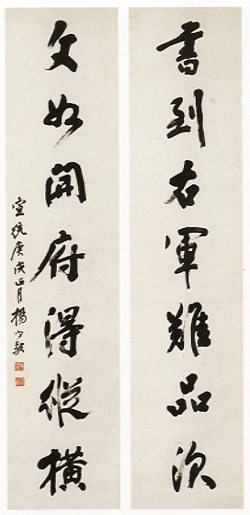 書到右軍難品次
文如開府得縱橫
宣統庚戌正月楊守敬